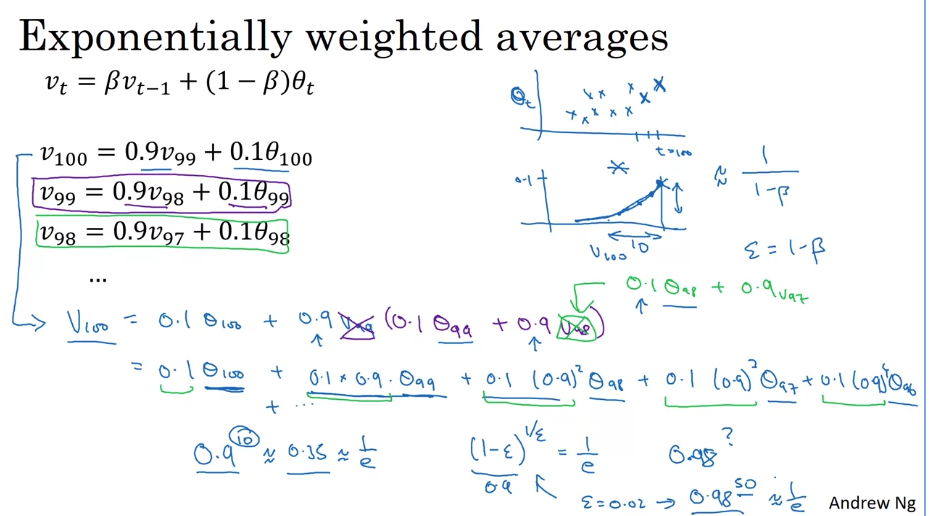 Exponentially weighted averages
v_t = βv_{t−1} + (1 − β)θ_t
θ_t
t=100
v_100 = 0.9v_99 + 0.1θ_100
v_99 = 0.9v_98 + 0.1θ_99
v_98 = 0.9v_97 + 0.1θ_98
...
0.1
V_100
10
≈ 1/(1−β)
ε = 1−β
0.1 θ_98 + 0.9 v_97
V_100 = 0.1 θ_100 + 0.9 v_99 (0.1 θ_99 + 0.9 v_98)
= 0.1 θ_100 + 0.1 × 0.9 · θ_99 + 0.1 (0.9)^2 θ_98 + 0.1 (0.9)^3 θ_97 + 0.1 (0.9)^4 θ_96
+ ...
0.9^10 ≈ 0.35 ≈ 1/e
(1−ε)^{1/ε} = 1/e
0.9
0.98^?
ε=0.02 → 0.98^50 ≈ 1/e
Andrew Ng